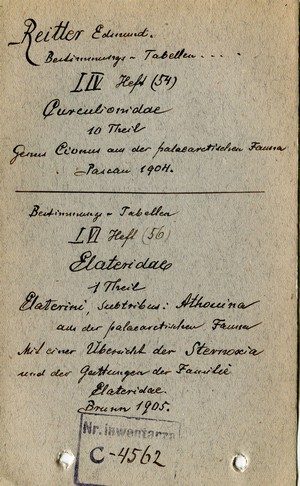 Reitter Edmund.
Bestimmungs-Tabellen . . . .
LIV Heft (54)
Curculionidae
10 Theil
Genus Cionus aus der palaearctischen Fauna
Pascau 1904.
Bestimmungs-Tabellen
LVI Heft (56)
Elateridae
1 Theil
Elaterini, Subtribus: Athouina
aus der palaearctischen Fauna
Mit einer Übersicht der Sternoxia
und der Gattungen der Familie
Elateridae.
Brunn 1905.
Nr. inwentarza
C-4562